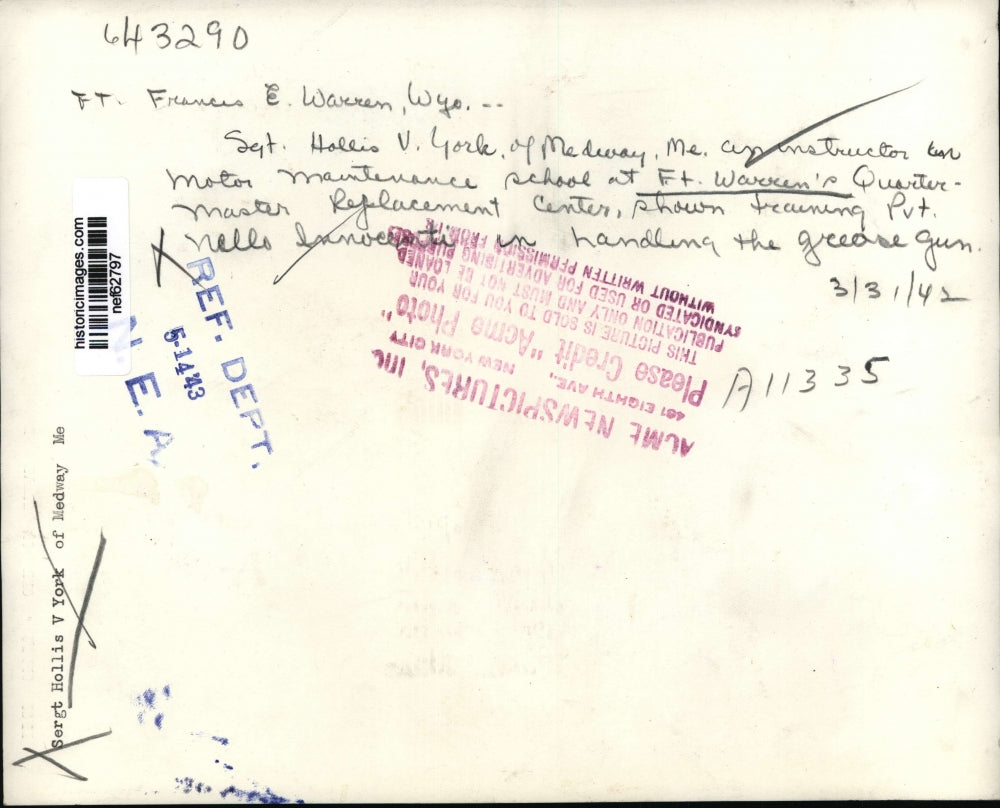 643290
Ft. Francis E. Warren, Wyo. --
Sgt. Hollis V. York, of Medway, Me. an instructor in
motor maintenance school at Ft. Warren's Quarter-
master Replacement Center, shown training Pvt.
Nello Innocenti in handling the grease gun.
3/31/42
A11335
historicimages.com
nef62797
REF. DEPT.
5-14'43
N. E. A.
ACME NEWSPICTURES, INC.
461 EIGHTH AVE., NEW YORK CITY
Please Credit "Acme Photo"
THIS PICTURE IS SOLD TO YOU FOR YOUR
PUBLICATION ONLY AND MUST NOT BE LOANED
SYNDICATED OR USED FOR ADVERTISING PURPOSES
WITHOUT WRITTEN PERMISSION FROM
Sergt Hollis V York of Medway Me